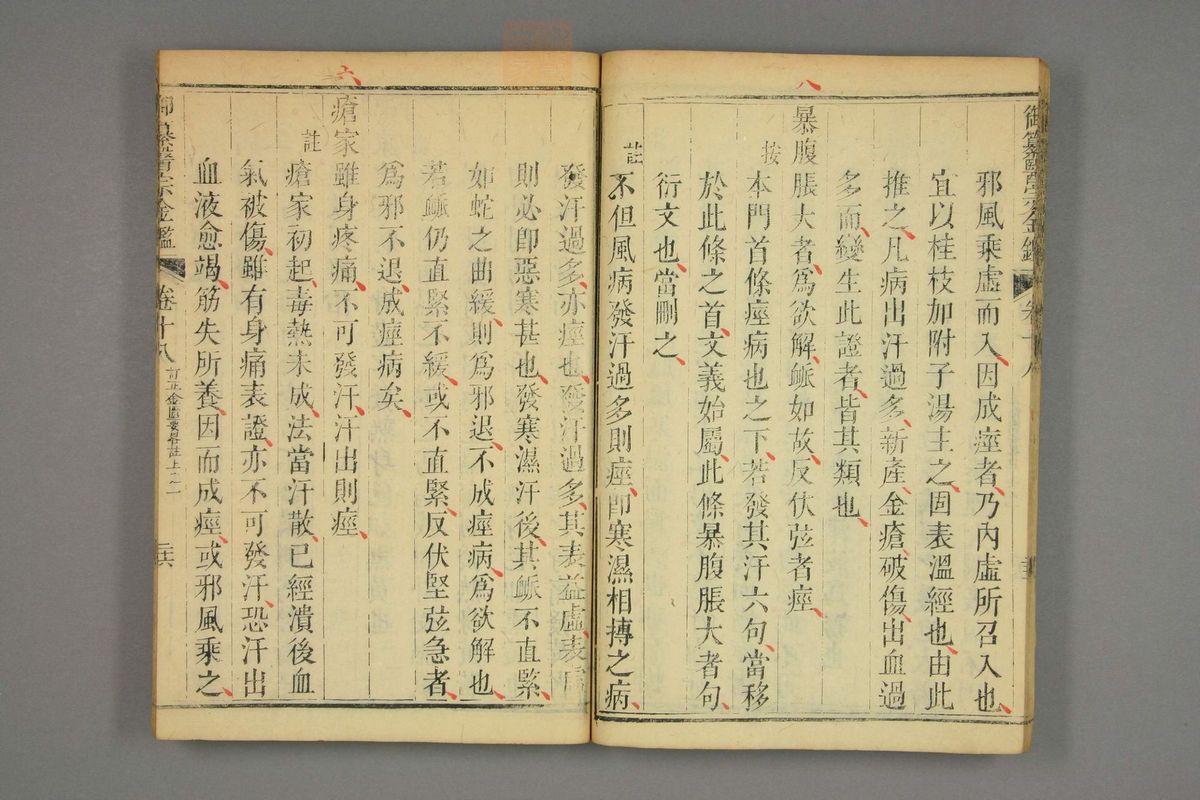 八
御纂醫宗金鑑
卷十八
邪風乘虛而入因成痙者乃內虛所召入也
宜以桂枝加附子湯主之固表溫經也由此
推之凡病出汗過多新產金瘡破傷出血過
多而變生此證者皆其類也
暴腹脹大者爲欲解脈如故反伏弦者痙
按
本門首條痙病也之下若發其汗六句當移
於此條之首文義始屬此條暴腹脹大者句
衍文也當刪之
註
不但風病發汗過多則痙卽寒濕相搏之病
六
發汗過多亦痙也發汗過多其表益虛表
則必卽惡寒甚也發寒濕汗後其脈不直緊
如蛇之曲緩則爲邪退不成痙病爲欲解也
若脈仍直緊不緩或不直緊反伏堅弦急者
爲邪不退成痙病矣
瘡家雖身疼痛不可發汗汗出則痙
註
瘡家初起毒熱未成法當汗散已經潰後血
氣被傷雖有身痛表證亦不可發汗恐汗出
血液愈竭筋失所養因而成痙或邪風乘之
御纂醫宗金鑑
卷十八
訂正金匱要畧註上之二